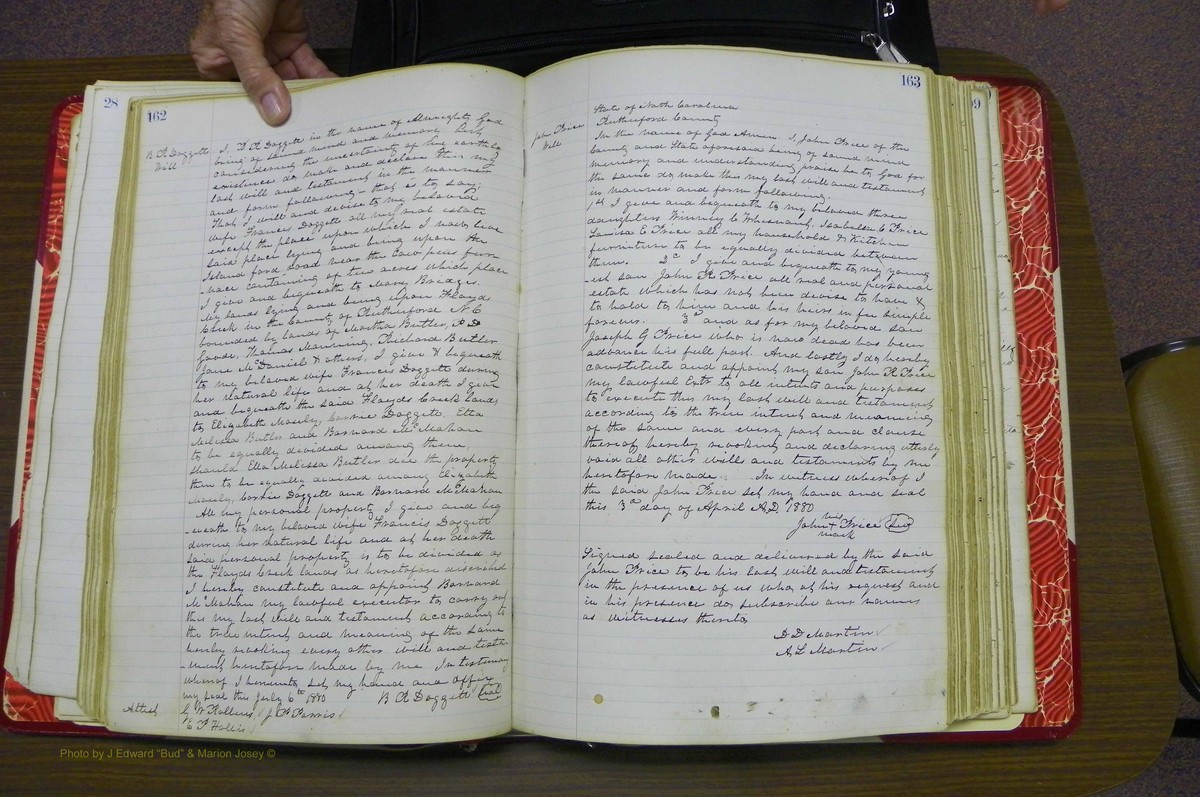 28
162
B. A. Doggett
Will
I, B. A. Doggett in the name of Almighty God
being of sound mind and memory but
considering the uncertainty of my earthly
existence do make and declare this my
last will and testament in the manner
and form following that is to say;
That I will and devise to my beloved
wife Francis Doggett all my real estate
except the place upon which I now live
said place lying and being upon the
Island ford road near the Cow pens fur
-nace containing of ten acres which place
I give and bequeath to Mary Bridges.
My lands lying and being upon Floyds
Creek in the County of Rutherford N. C
bounded by lands of Martha Butler,
Goode, Thomas Manning, Richard Butler
Jane McDaniel & others, I give & bequeath
to my beloved wife Francis Doggett during
her natural life and at her death I give
and bequeath the said Floyds Creek lands
to Elizabeth Mosely, Corrie Doggett, Ella
Melissa Butler and Barnard McMahan
to be equally divided among them,
should Ella Melissa Butler die the property
then to be equally divided among Elizabeth
Mosely, Corrie Doggett and Barnard McMahan
All my personal property I give and beq
-ueath to my beloved wife Francis Doggett
during her natural life and at her death
said personal property is to be divided as
the Floyds Creek lands as heretofore described
I hereby constitute and appoint Barnard
McMahan my lawful executor to carry out
this my last will and testament according to
the true intent and meaning of the same
hereby revoking every other will and testa
-ment heretofore made by me In testimony
whereof I hereunto set my hand and affix
my seal this July 6th 1880 B A Doggett Seal
Attest
G W Rollins, J H Parris
E P Hollis
163
John Price
Will
State of North Carolina
Rutherford County
In the name of God Amen. I, John Price of the
County and State aforesaid being of sound mind
memory and understanding praise be to God for
the same do make this my last will and testament
in manner and form following.
1st I give and bequeath to my beloved three
daughters Winney C Whesnant, Isabella C Price
Louisa E Price all my household & Kitchen
furniture to be equally divided between
them. 2d I give and bequeath to my young
-est son John R Price all real and personal
estate which has not been devise to have &
to hold to him and his heirs in fee simple
forever. 3d and as for my beloved son
Joseph G Price who is now dead has been
advance his full part. And lastly I do hereby
constitute and appoint my son John R Price
my lawful Extr to all intents and purposes
to execute this my last will and testament
according to the true intent and meaning
of the same and every part and clause
thereof hereby revoking and declaring utterly
void all other wills and testaments by me
heretofore made. In witness whereof I
the said John Price set my hand and seal
this 3d day of April A.D. 1880
his
John + Price Seal
mark
Signed sealed and delivered by the said
John Price to be his last will and testament
in the presence of us who at his request and
in his presence do subscribe our names
as witnesses thereto
D D Martin
A L Martin
Photo by J Edward "Bud" & Marion Josey ©